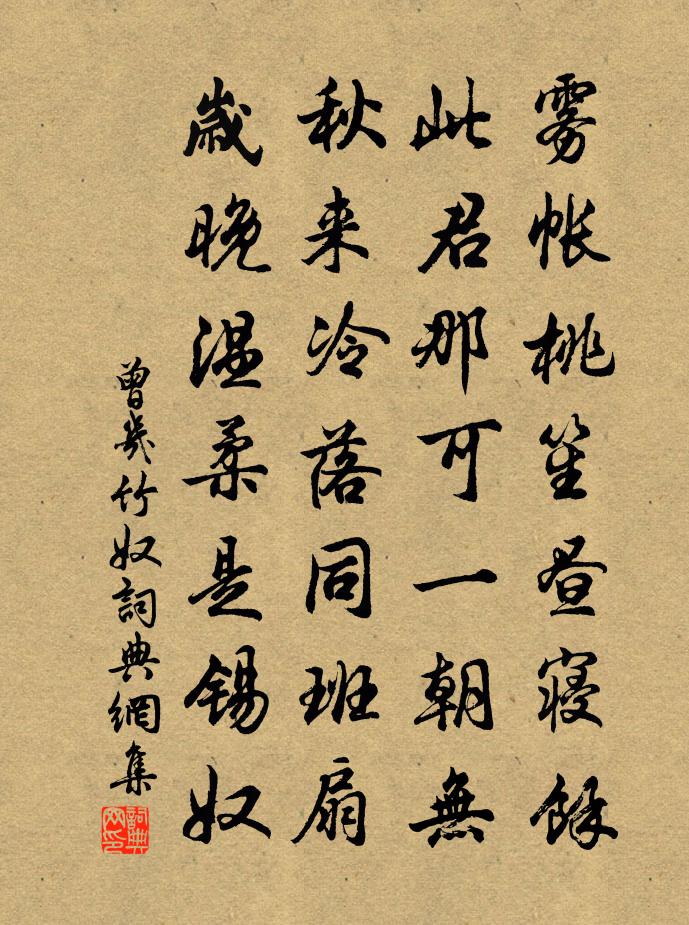 雾帐桃笙昼寝馀
此君那可一朝無
秋来冷落同班扇
歲晚温柔是锡奴
曾幾竹奴詞典網集
詞典网印